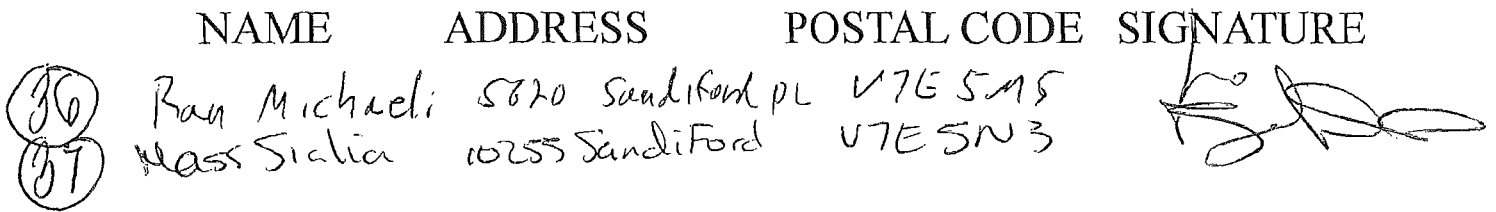 NAME ADDRESS POSTAL CODE SIGNATURE
36 Ran Michaeli 5620 Sandiford PL V7E 5M5
37 Mass Sialia 10255 SandiFord V7E 5N3